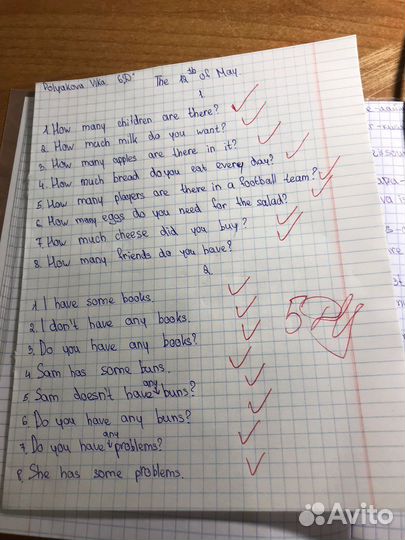 Polyakova Vika 6"D" The 12th of May.
1.
1. How many children are there?
2. How much milk do you want?
3. How many apples are there in it?
4. How much bread do you eat every day?
5. How many players are there in a football team?
6. How many eggs do you need for the salad?
7. How much cheese did you buy?
8. How many friends do you have?
2.
1. I have some books.
2. I don't have any books.
3. Do you have any books?
4. Sam has some buns.
5. Sam doesn't have any buns?
6. Do you have any buns?
7. Do you have any problems?
8. She has some problems.
5
Avito